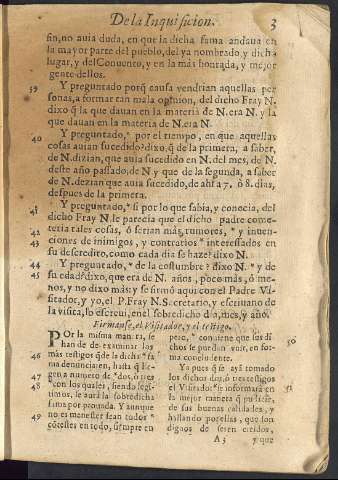 De la Inquisicion. 3
sin, no auia duda, en que la dicha fama andaua en
la mayor parte del pueblo, del ya nombrado, y dicho
lugar, y del Conuento, y en la más honrada, y mejor
gente dellos.
39 Y preguntado porq̃ causa vendrian aquellas per
sonas, a formar tan mala opinion, del dicho Fray N.
dixo q̃ la que dauan en la materia de N. era N. y la
que dauan en la materia de N. era N.
40 Y preguntado, * por el tiempo, en que aquellas
cosas auian sucedido? dixo, q̃ de la primera, a saber,
de N. dizian, que auia sucedido en N. del mes, de N.
deste año passado, de N. y que de la segunda, a saber
de N. dezian que auia sucedido, de ahi a 7. ò 8. dias,
despues de la primera.
41 Y preguntado, * si por lo que sabia, y conocia, del
dicho Fray N. le parecia que el dicho padre come-
42 teria tales cosas, ò serian más, rumores, * y inten-
43 ciones de inimigos, y contrarios * interessados en
su descredito, como cada dia se haze? dixo N.
44 Y preguntado, * de la costumbre? dixo N. * y de
45 su edad? dixo, que era de N. años, poco màs, ò me-
nos, y no dixo màs: y se firmò aqui con el Padre Vi-
sitador, y yo, el P. Fray N. Secretario, y escriuano de
la visita, lo escreui, en el sobredicho dia, mes, y año.
Firmanse, el Visitador, y el testigo.
POr la misma manera, se
han de de examinar los
46 màs testigos q̃ de la dicha * fa
ma denunciaren, hasta q̃ lle-
47 gen a numero de * dos, ò tres
48 * con los quales, siendo legi-
timos, se aurà la sobredicha
fama por prouada. Y aunque
49 no es menester sean todos *
cõtestes en todo, siempre em
pero, * conuiene que sus di- 50
chos se puedan vnir, en for-
ma concludente.
Ya pues q̃ se ayà tomado
los dichos dos, ò tres testigos
el Visitador * se informarà en 51
la mejor manera q̃ pudiere,
de sus buenas calidades, y
hallando por ellas, que son
dignos de seren creidos,
A 3 y que